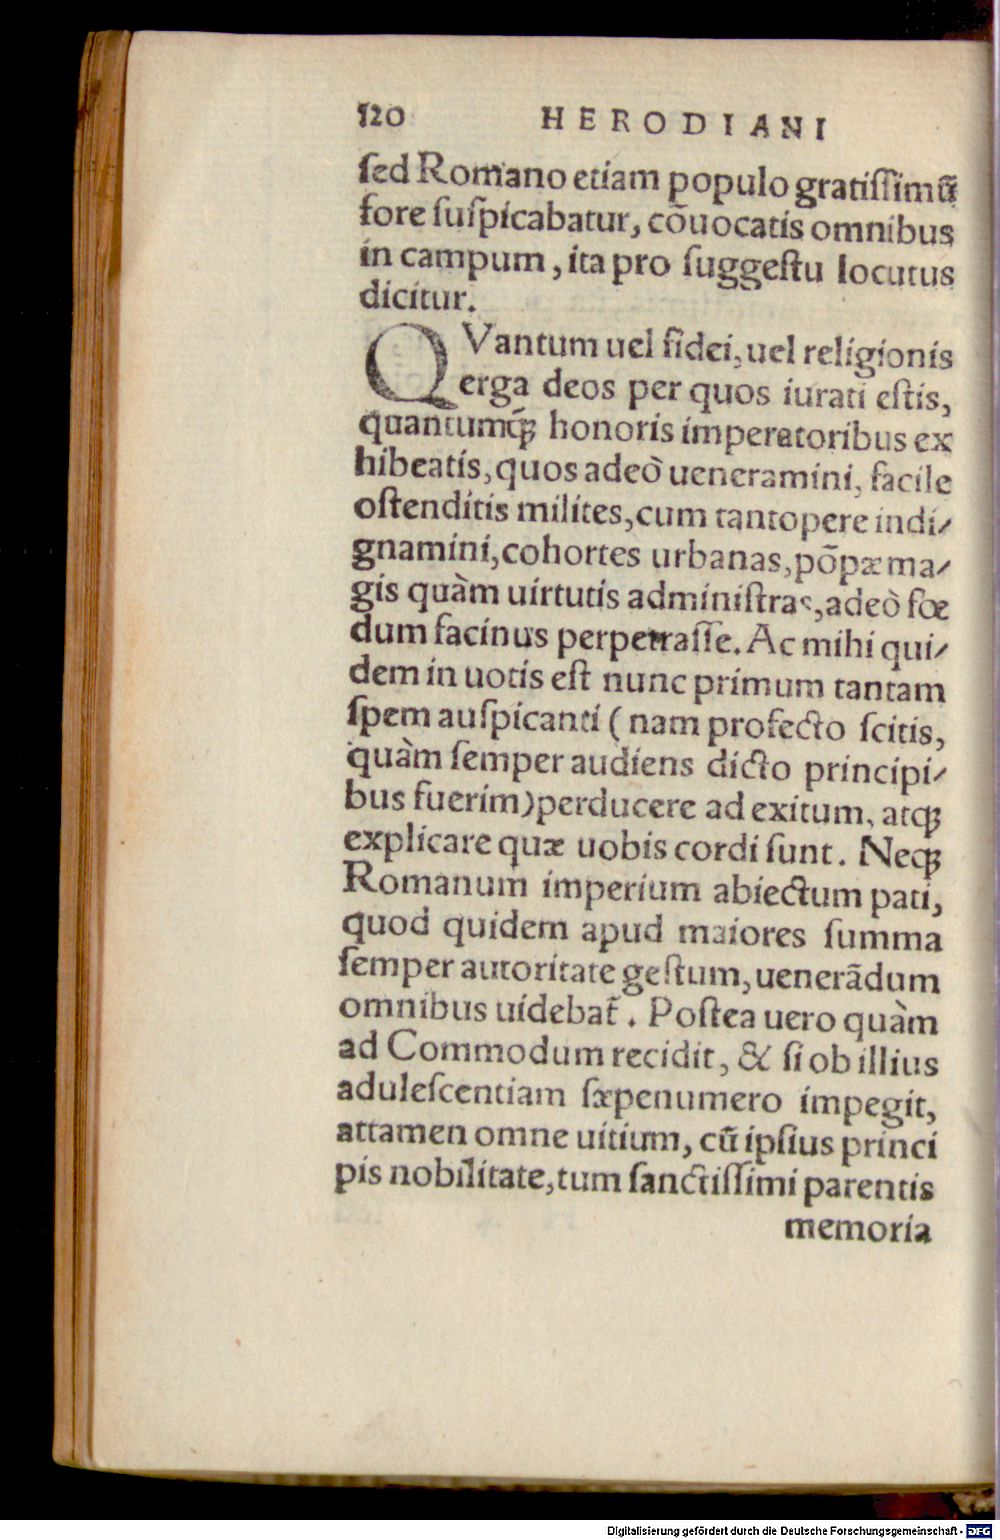 120 HERODIANI
ſed Romano etiam populo gratiſſimũ
fore ſuſpicabatur, cõuocatis omnibus
in campum, ita pro ſuggeſtu locutus
dicitur.
QVantum uel fidei, uel religionis
erga deos per quos iurati eſtis,
quantumq́ꝫ honoris imperatoribus ex
hibeatis, quos adeò ueneramini, facile
oſtenditis milites, cum tantopere indi⸗
gnamini, cohortes urbanas, põpæ ma⸗
gis quàm uirtutis adminiſtras, adeò fœ
dum facinus perpetraſſe. Ac mihi qui⸗
dem in uotis eſt nunc primum tantam
ſpem auſpicanti (nam profecto ſcitis,
quàm ſemper audiens dicto principi⸗
bus fuerim) perducere ad exitum, atqꝫ
explicare quæ uobis cordi ſunt. Neqꝫ
Romanum imperium abiectum pati,
quod quidem apud maiores ſumma
ſemper autoritate geſtum, uenerãdum
omnibus uidebat̃. Poſtea uero quàm
ad Commodum recidit, & ſi ob illius
aduleſcentiam ſæpenumero impegit,
attamen omne uitium, cũ ipſius princi
pis nobilitate, tum ſanctiſſimi parentis
memoria
Digitalisierung gefördert durch die Deutsche Forschungsgemeinschaft - DFG